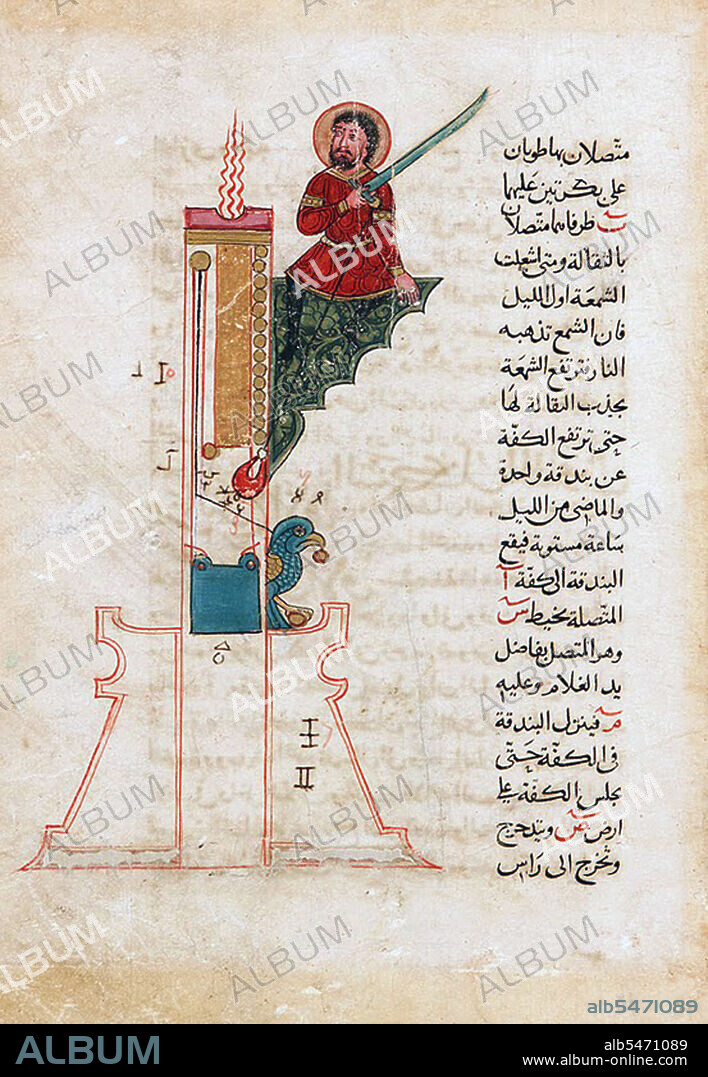 متصلان بهاطوبان
على بكرتين عليهما
طرفاهما متصلان
بالثقالة ومتى اشعلت
الشمعة اول الليل
فان الشمع تذهبه
النار فترتفع الشمعة
بجذب الثقالة لها
حتى ترتفع الكفة
عن بندقة واحدة
والماضى من الليل
ساعة مستوية فيقع
البندقة الى كفة آ
المتصلة بخيط س
وهو المتصل بفاضل
يد الغلام وعليه
فينزل البندقة
فى الكفة حتى
يجلس الكفة على
ارض ويتدحرج
وتخرج الى راس
ALBUM
alb5471089
ALBUM
alb5471089
www.album-online.com